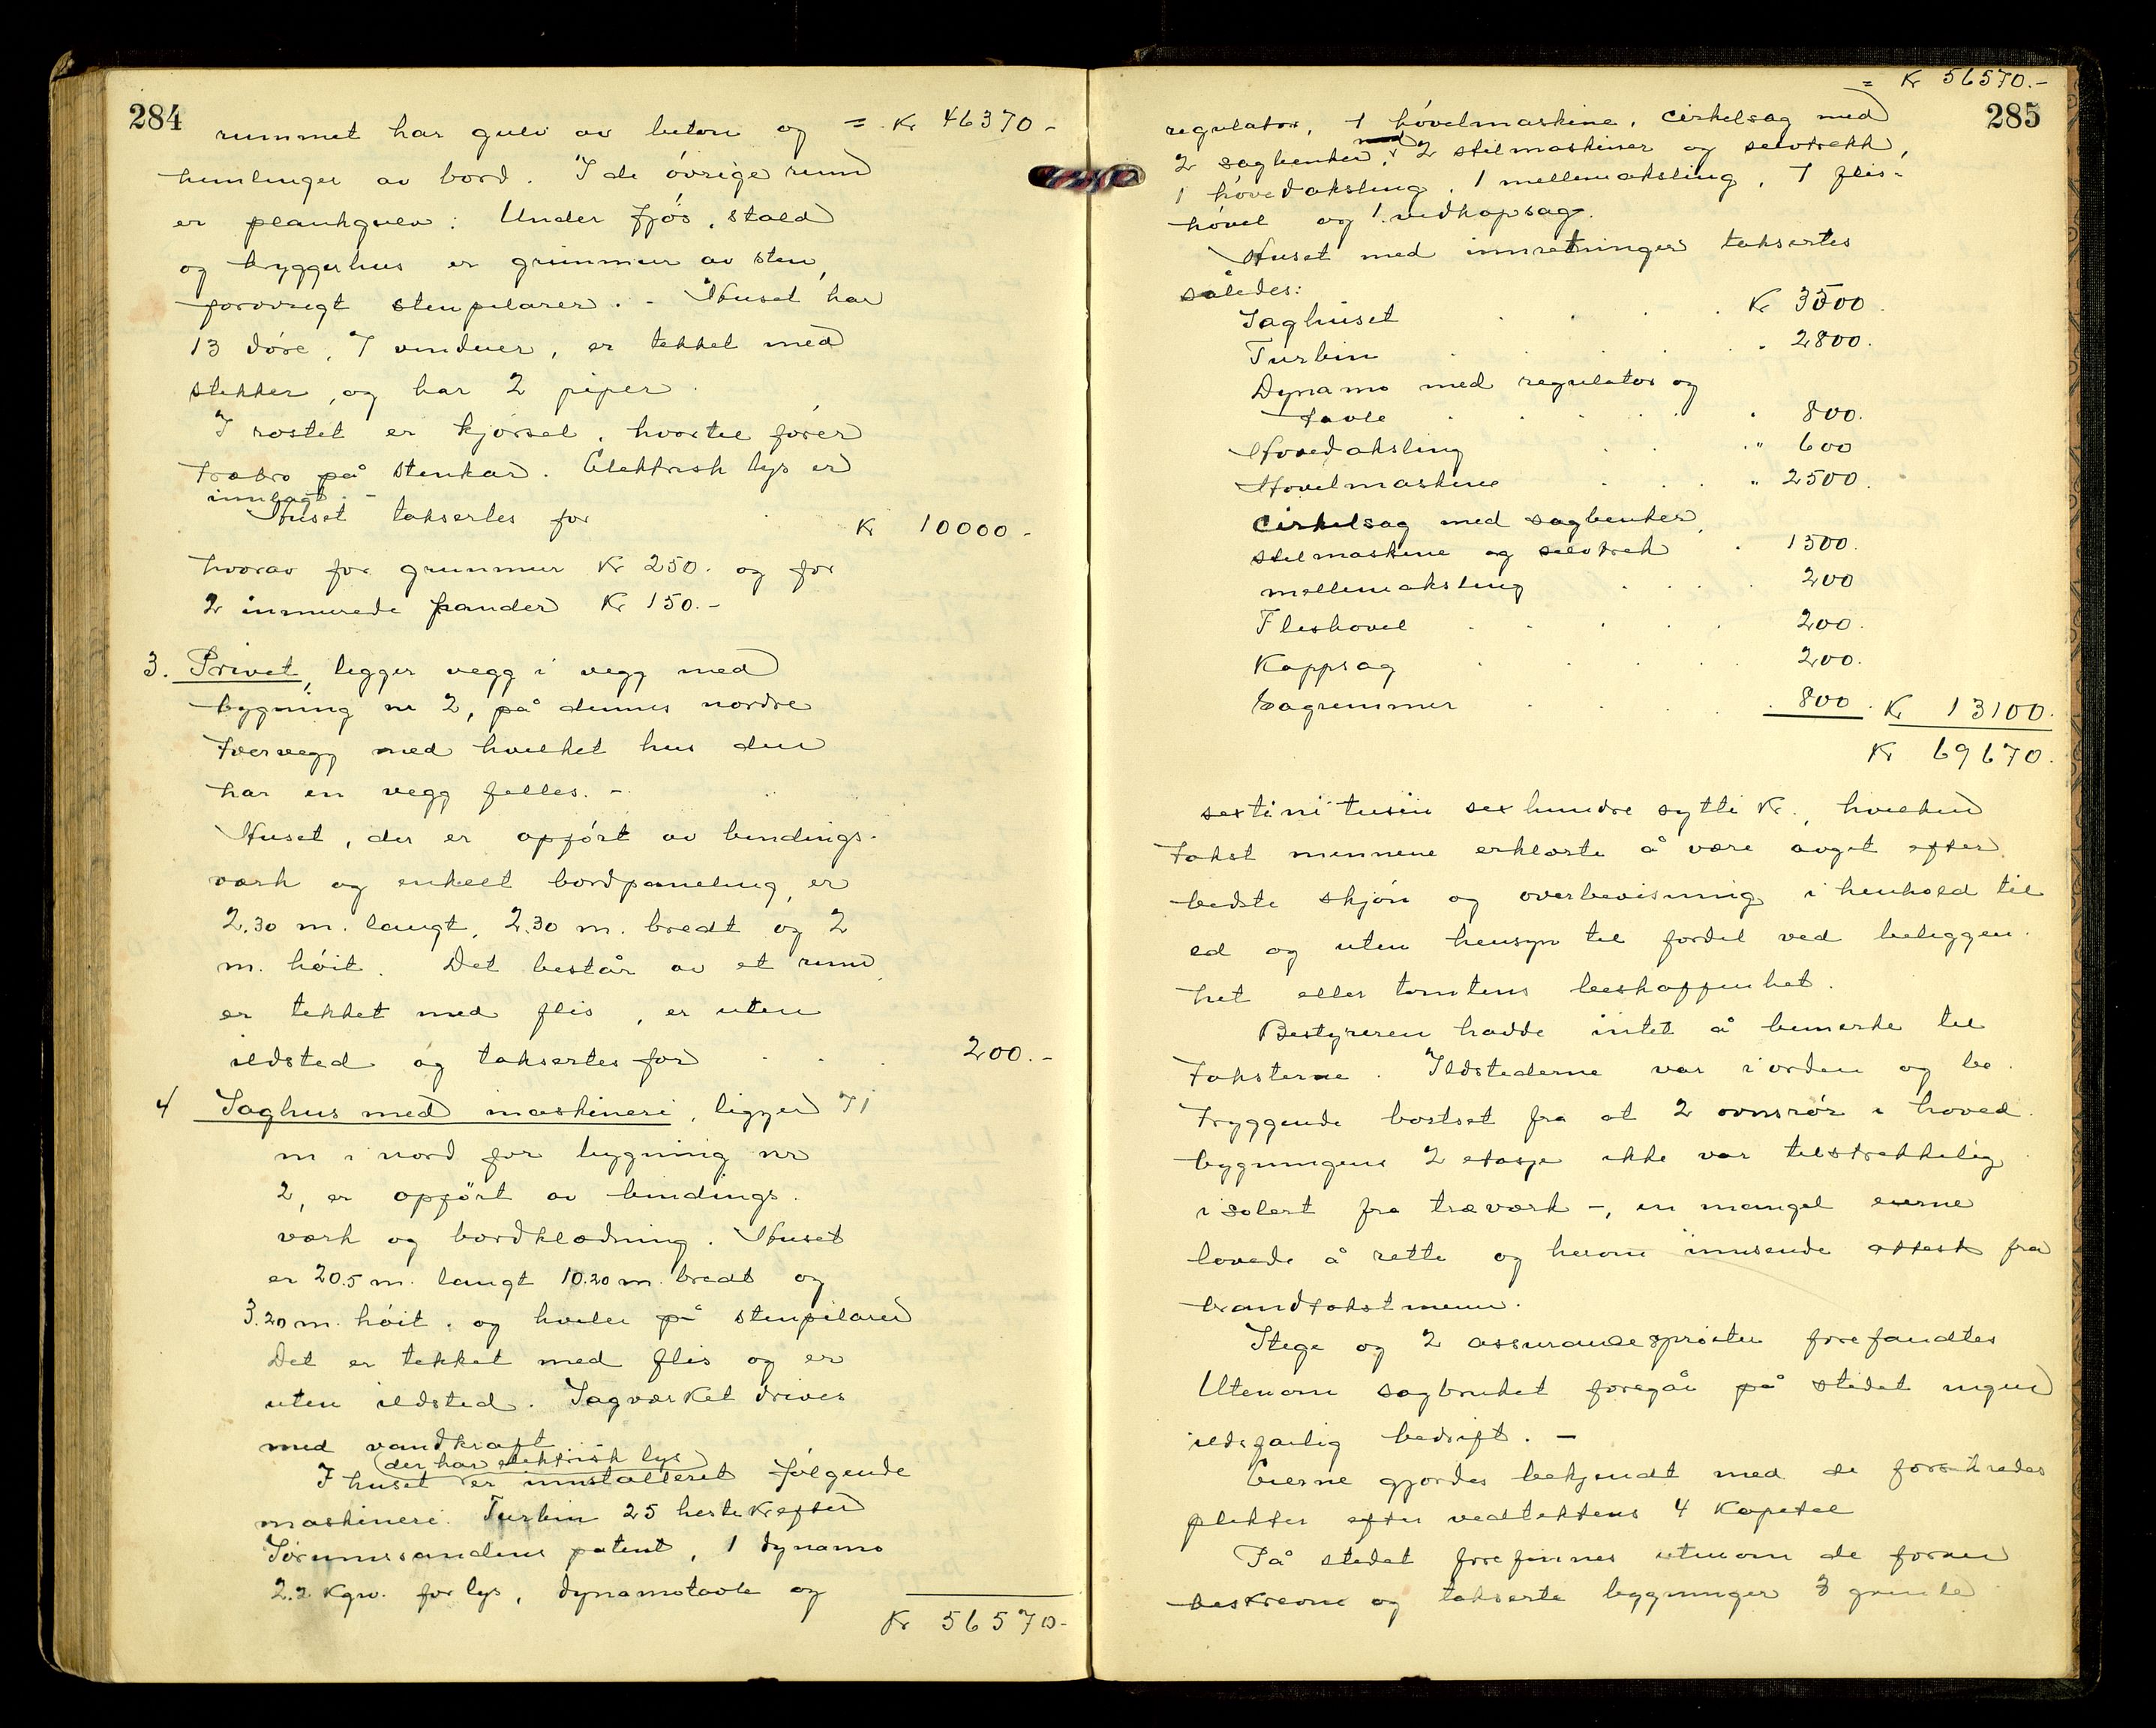 284
rummet har gulv av beton og = Kr 46370 -
himlinger av bord. I de óvrige rum
er plankgulv: Under fjós, stald
og bryggerhus er grunmur av sten,
forovrigt stenpilarer. - Huset har
13 dóre, 7 vinduer, er tekket med
stikker, og har 2 piper.
I róstet er kjórsel, hvortil fórer
træbro på stenkar. Elektrisk lys er
innlagt. -
Huset taksertes for Kr 10000 -
hvorav for grunmur Kr 250. og for
2 inmurede pander Kr 150.-
3. Privet, ligger vegg i vegg med
bygning nr 2, på dennes nordre
tvervegg med hvilket hus den
har en vegg felles. -
Huset, der er opfórt av bindings-
verk og enkelt bordpaneling, er
2.30 m. langt, 2.30 m. bredt og 2
m. hóit. Det består av et rum,
er tekket med flis, er uten
ildsted og taksertes for . . . 200.-
4 Saghus med maskineri, ligger 71
m i nord for bygning nr
2, er opfórt av bindings-
værk og bordklædning. Huset
er 20.5 m. langt 10.20 m. bredt og
3.20 m. hóit, og hviler på stenpilarer
Det er tekket med flis og er
uten ildsted. Sagværket drives
med vandkraft
(der har elektrisk lys)
I huset er innstalleret fólgende
maskineri. Turbin 25 hestekrefter
Sórumsandens patent, 1 dynamo
2.2 Kgw. for lys, dynamotavle og
Kr 56570-
= Kr 56570.-
285
regulator, 1 hóvelmaskine, cirkelsag med
2 sagbenker, med 2 stilmaskiner og selvtrekk,
1 hóvedaksling, 1 mellemaksling, 1 flis-
hóvel og 1 vedkapsag.
Huset med innretninger taksertes
således:
Saghuset . . . . Kr 3500.
Turbin . . . . . 2800.
Dynamo med regulator og
tavle . . . . . 800.
Hovedaksling . . . " 600
Hovelmaskine . . . " 2500.
Cirkelsag med sagbenker,
stilmaskine og selvtrek . 1500.
mellemaksling . . . . 200
Flishovel . . . . . 200.
Kappsag . . . . 200.
Sagremmer . . . . 800. Kr 13100.
Kr 69670.
sextini tusin sexhundre sytti Kr., hvilken
takst mennene erklærte å være avgit efter
bedste skjón og overbevisning i henhold til
ed og uten hensyn til fordel ved beliggen-
het eller tomtens beskaffenhet.
Bestyreren hadde intet å bemerke til
taksterne. Ildstederne var i orden og be-
tryggende bortset fra at 2 ovnsrór i hoved-
bygningens 2 etasje ikke var tilstrekkelig
isolert fra træværk -, en mangel eierne
lovede å rette og herom innsende attest fra
brandtakstmenn.
Stege og 2 assuransesprøiter forefandtes
Utenom sagbruket foregår på stedet ingen
ildsfarlig bedrift. -
Eierne gjordes bekjendt med de forsikredes
plikter efter vedtektens 4 Kapitel
På stedet forefinnes utenom de foran
beskrevne og takserte bygninger 3 gamle